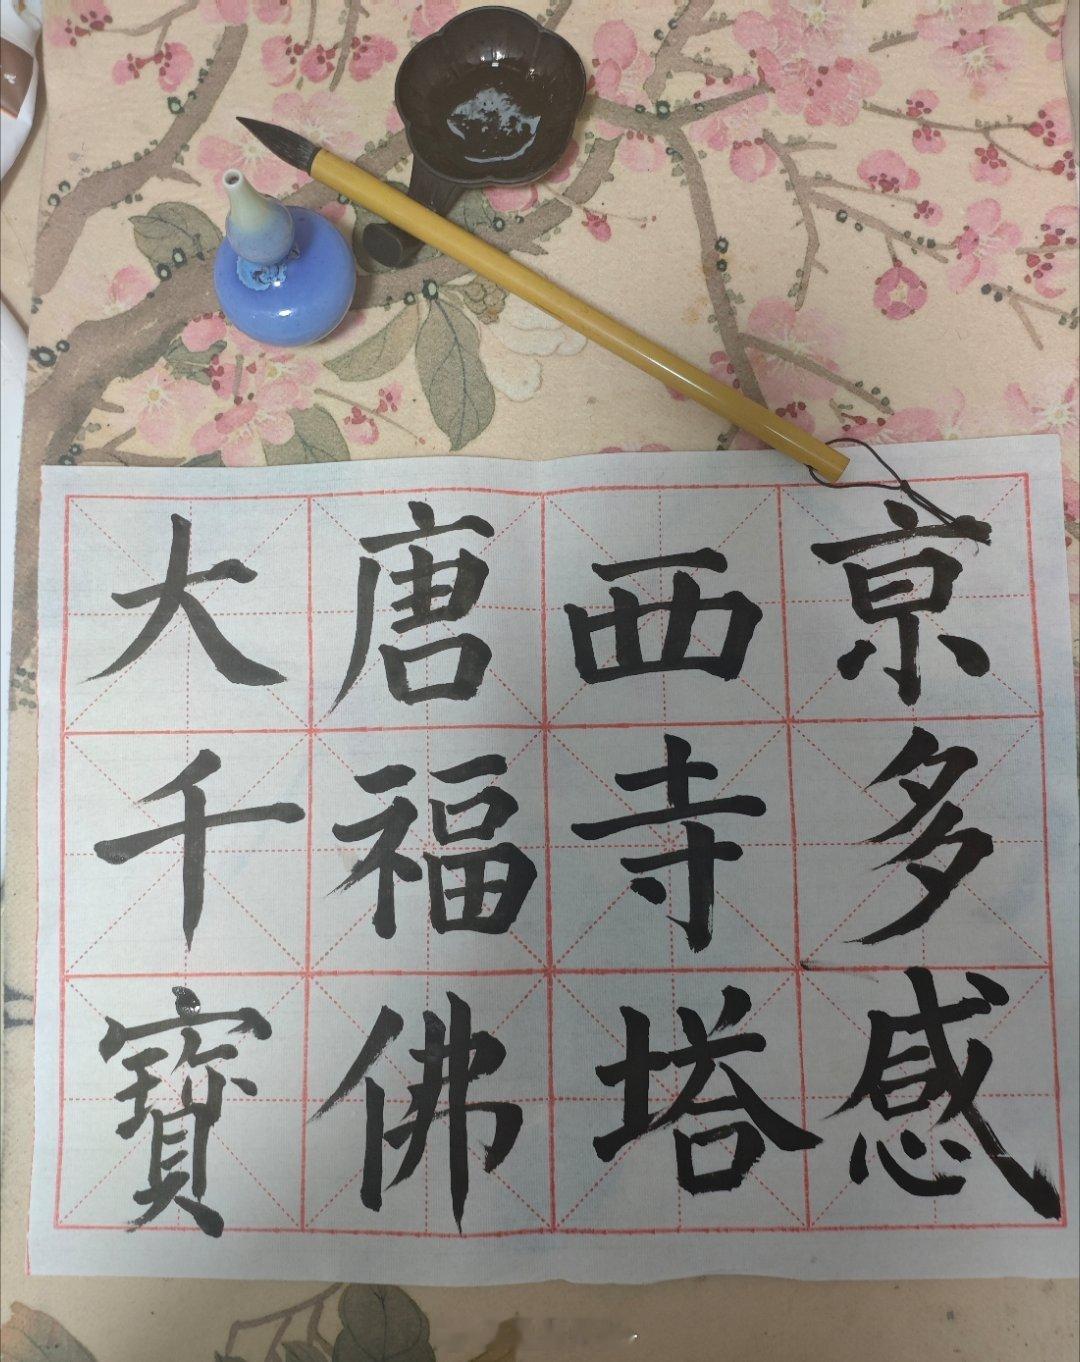 大唐西亰
千福寺多
寳佛塔感